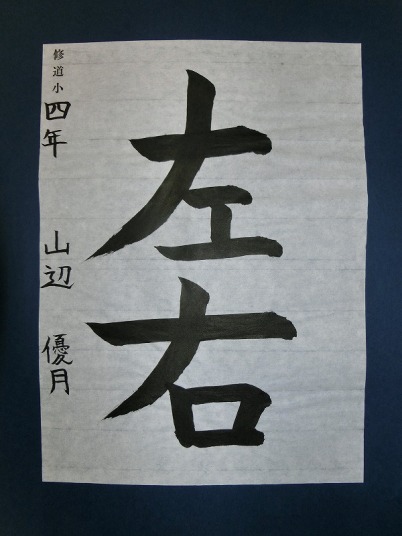 左右
修道小 四年 山辺 優月